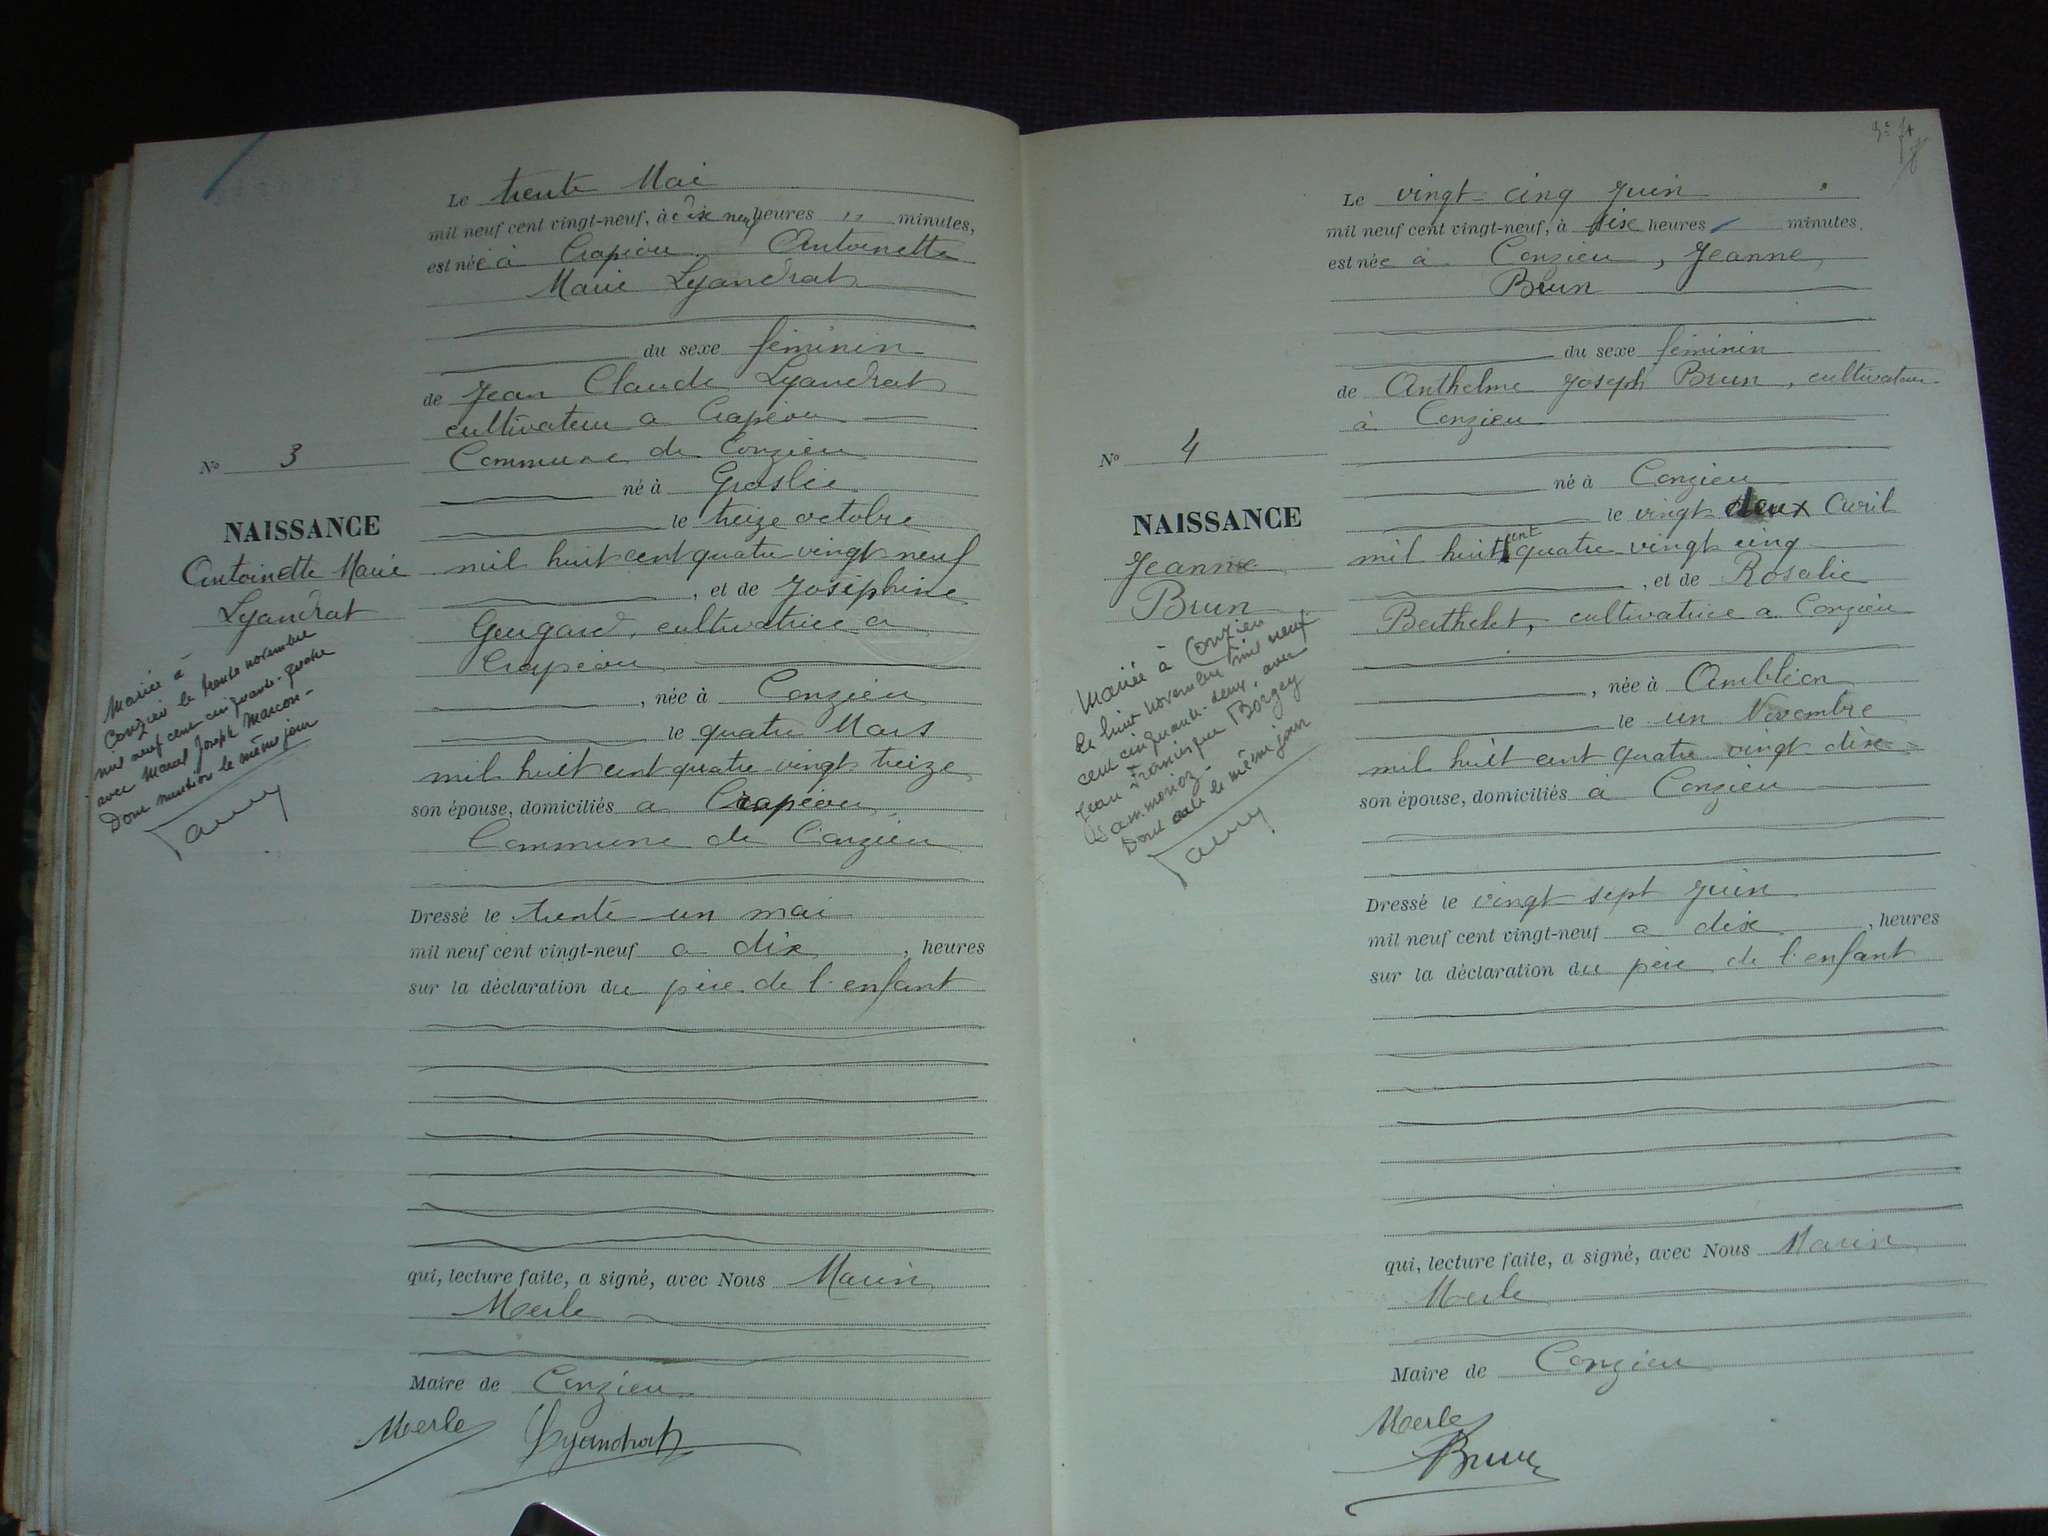 Le trente Mai
mil neuf cent vingt-neuf, à dix neuf heures " minutes,
est née à Crapéou Antoinette
Marie Lyandrat
du sexe féminin
de Jean Claude Lyandrat
cultivateur a Crapéou
Commune de Conzieu
né à Groslée
le treize octobre
mil huit cent quatre vingt neuf
, et de Joséphine
Gengard, cultivatrice a
Crapéou
, née à Conzieu
le quatre Mars
mil huit cent quatre vingt treize
son épouse, domiciliés a Crapéou
Commune de Conzieu
Dressé le trente un mai
mil neuf cent vingt-neuf a dix , heures
sur la déclaration du père de l'enfant
qui, lecture faite, a signé, avec Nous Marin
Merle
Maire de Conzieu
Merle Lyandrat
No 3
NAISSANCE
Antoinette Marie
Lyandrat
Mariée à
Conzieu le trente novembre
mil neuf cent cinquante-quatre
avec Marcel Joseph Marcon-
Dont mention le même jour
Le vingt cinq Juin
mil neuf cent vingt-neuf, à dix heures minutes.
est née à Conzieu, Jeanne
Brun
du sexe féminin
de Anthelme Joseph Brun, cultivateur
à Conzieu
né à Conzieu
le vingt deux Avril
mil huit cent quatre vingt cinq
, et de Rosalie
Berthelet, cultivatrice a Conzieu
, née à Ambléon
le un Novembre
mil huit cent quatre vingt dix
son épouse, domiciliés à Conzieu
Dressé le vingt sept Juin
mil neuf cent vingt-neuf a dix , heures
sur la déclaration du père de l'enfant
qui, lecture faite, a signé, avec Nous Marin
Merle
Maire de Conzieu
Merle
Brun
No 4
NAISSANCE
Jeanne
Brun
Mariée à Conzieu
le huit novembre mil neuf
cent cinquante-deux, avec
Jean Francisque Borgey
Dont acte le même jour